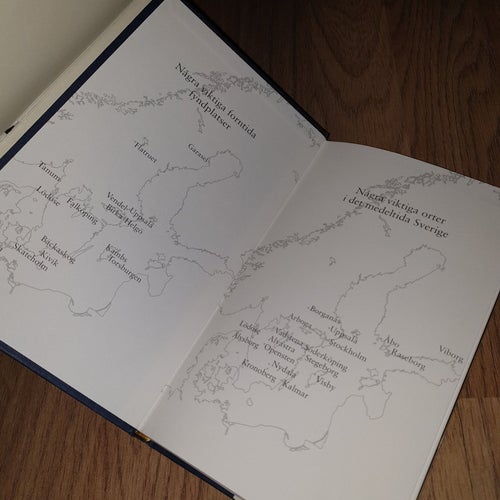 Några viktiga forntida
fyndplatser
Flatruet
Garaset
Tanum
Lödöse
Falköping
Vendel
Uppsala
Birka
Helgö
Bäckaskog
Kivik
Skateholm
Kambs
Torsburgen
Några viktiga orter
i det medeltida Sverige
Borganäs
Arboga
Uppsala
Stockholm
Åbo
Raseborg
Viborg
Lödöse
Älvsborg
Vadstena
Söderköping
Alvastra
Stegeborg
Opensten
Nydala
Kronoberg
Kalmar
Visby